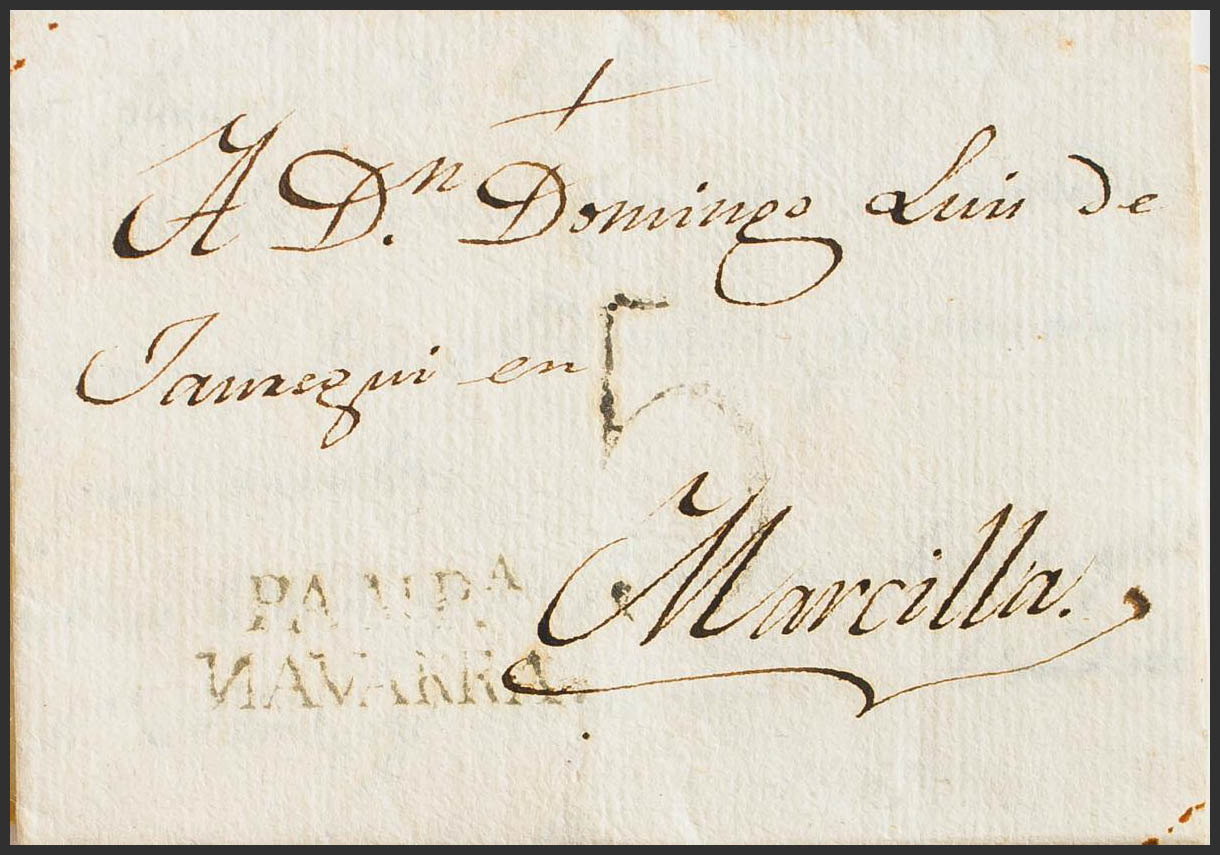 A D.ⁿ Domingo Luis de
Jauregui en
5
Marcilla.
PAMPA
NAVARRA